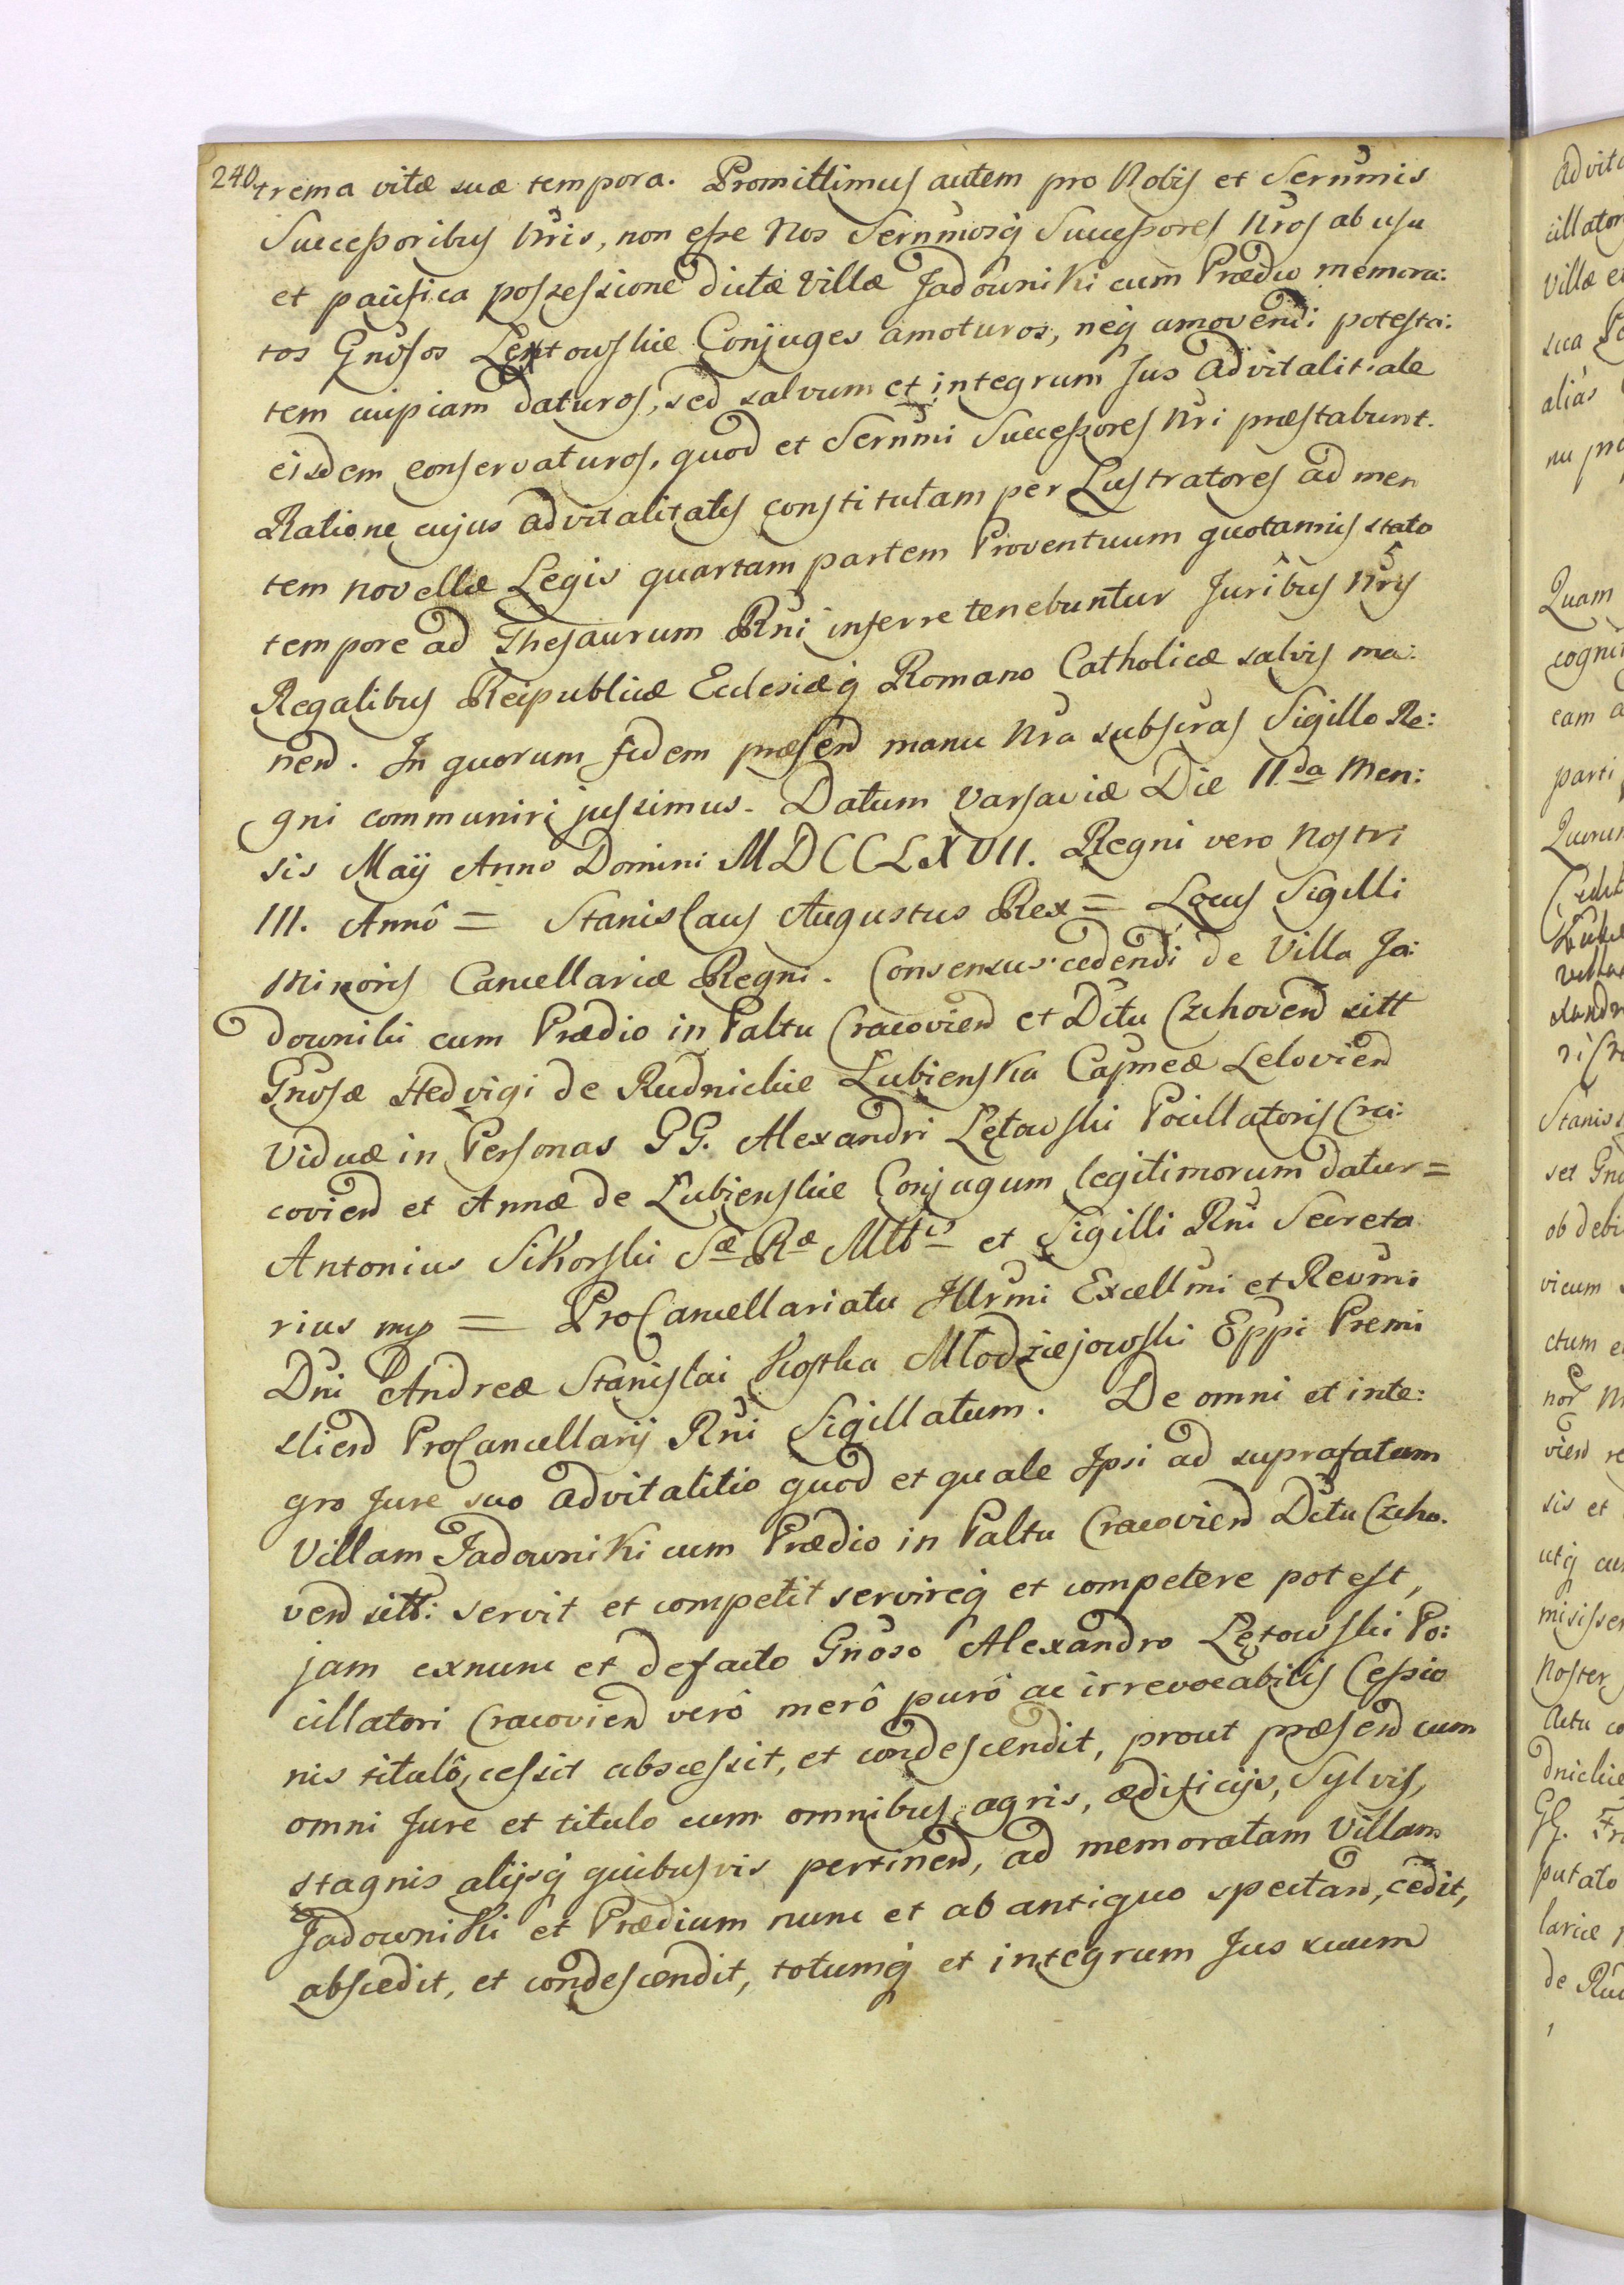 240
trema vitæ suæ tempora. Promittimus autem pro Nobis et Sernmis
Successoribus Nris, non esse Nos Sernmosq Successores Nros ab usu
et pacifica possessione dictæ Villæ Jadowniki cum Prædio memora:
tos Gnosos Lentowskie Conjuges amoturos, neq amovendi potesta:
tem cuipiam daturos, sed salvum et integrum Jus Advitalitiale
eisdem conservaturos, quod et Sernmi Successores Nri præstabunt.
Ratione cujus advitalitatis constitutam per Lustratores ad men
tem novellæ Legis quartam partem Proventuum quotannis stato
tempore ad Thesaurum Rni inferre tenebuntur Juribus Nris
Regalibus Reipublicæ Ecclesiæq Romano Catholicæ salvis ma:
nend. In quorum fidem præsend manu Nra subscras Sigillo Re:
gni communiri jussimus. Datum Varsaviæ Die II da Men:
sis Maÿ Anno Domini MDCCLXVII. Regni vero Nostri
III. Annô = Stanislaus Augustus Rex = Locus Sigilli
Minoris Cancellariæ Regni. Consensus cedendi de Villa Ja:
downiki cum Prædio in Paltu Cracoviend et Dctu Czchovend sitt
Gnosæ Hedvigi de Rudnickie Lubienska Capmeæ Leloviend
Viduæ in Personas GG. Alexandri Lętowski Pocillatoris Cra:
coviend et Annæ de Lubienskie Conjugum legitimorum datur =
Antonius Sikorski Sæ Ræ Mttis et Sigilli Rni Secreta
rius mp = ProCancellariatu Illrmi Excellmi et Reumi
Dni Andreæ Stanislai Kostka Młodziejowski Eppi Premi
sliend ProCancellarij Rni Sigillatum. De omni et inte:
gro Jure suo advitalitio quod et quale Ipsi ad suprafatam
Villam Jadowniki cum Prædio in Paltu Cracoviend Dctu Czcho.
vend sitt: servit et competit servireq et competere potest,
jam exnunc et defacto Gnoso Alexandro Lętowski Po:
cillatori Cracoviend verô merô purô ac irrevocabilis Cessio
nis titulô, cessit abscessit, et condescendit, prout præsend cum
omni Jure et titulo cum omnibus agris, ædificijs, Sylvis,
stagnis alijsq quibusvis pertinend, ad memoratam Villam
Jadowniki et Prædium nunc et ab antiquo spectand, cedit,
abscedit, et condescendit, totumq et integrum Jus suum